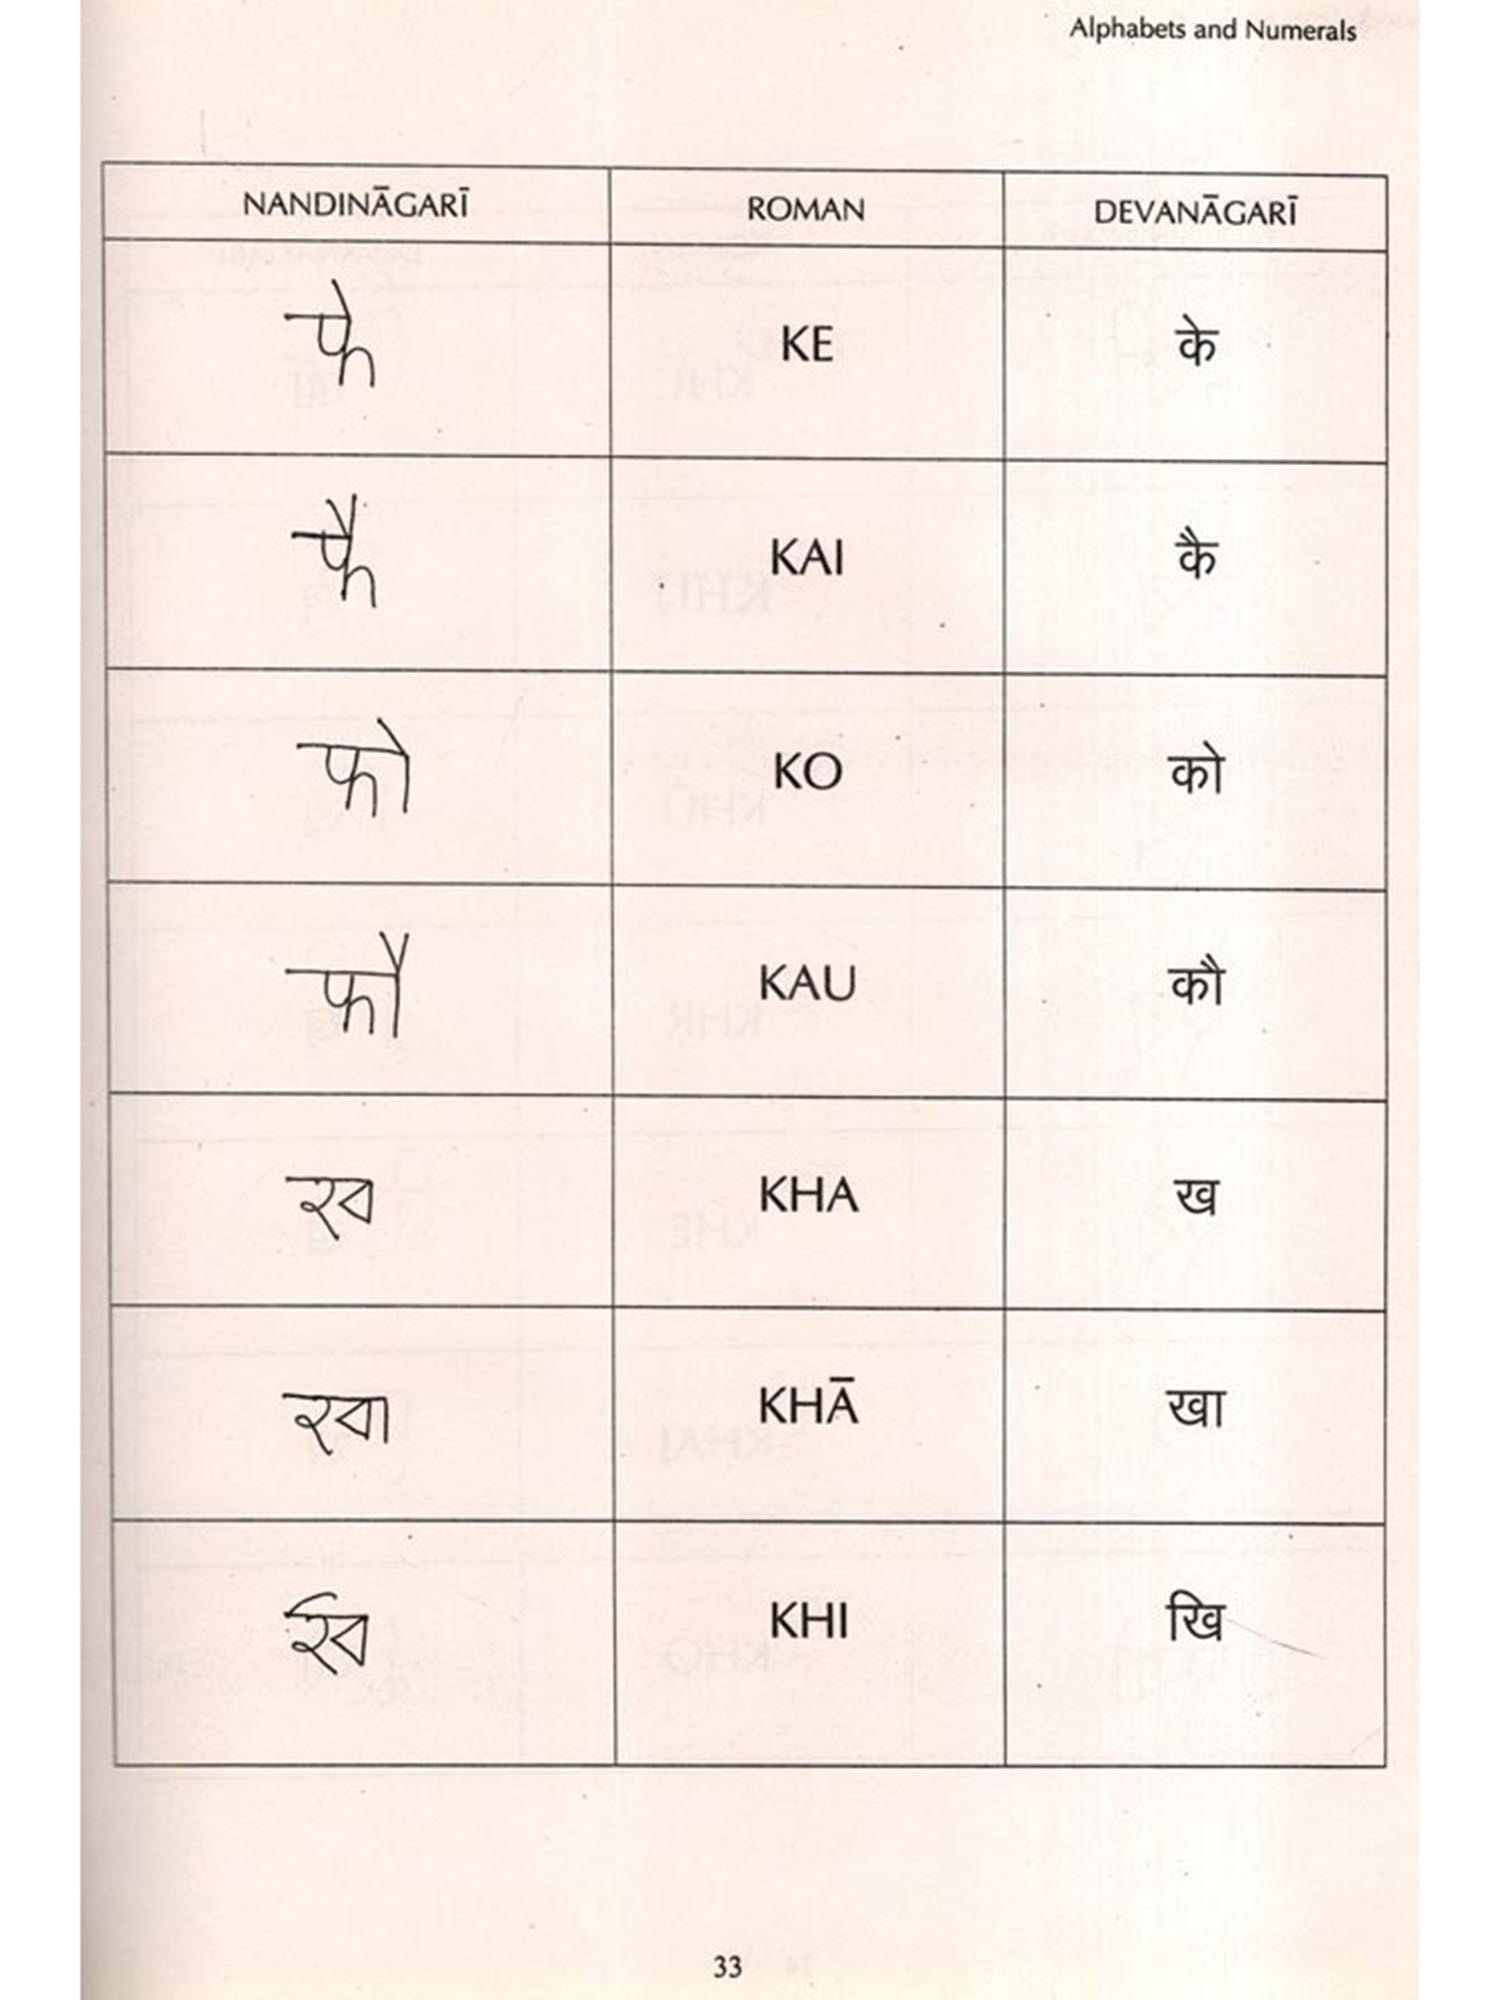 Alphabets and Numerals
NANDINĀGARĪ ROMAN DEVANĀGARĪ
KE के
KAI कै
KO को
KAU कौ
KHA ख
KHĀ खा
KHI खि
33